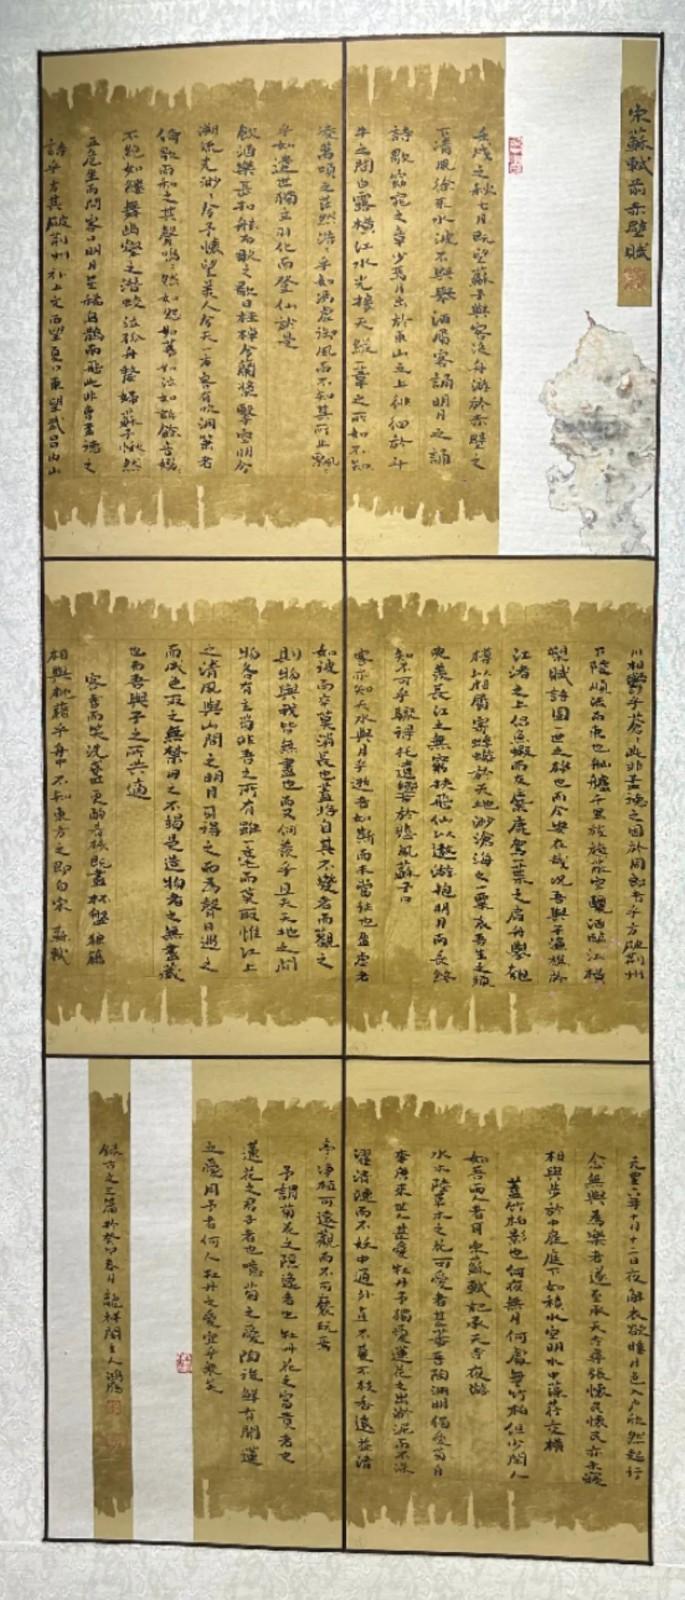 宋蘇軾前赤壁賦
壬戌之秋七月既望蘇子與客泛舟游於赤壁之
下清風徐來水波不興舉酒屬客誦明月之誦
詩歌窈窕之章少焉月出於東山之上徘徊於斗
牛之間白露橫江水光接天縱一葦之所如不知
凌萬頃之茫然浩乎如馮虛御風而不知其所止飄
乎如遺世獨立羽化而登仙於是
飲酒樂甚扣舷而歌之歌曰桂棹兮蘭槳擊空明兮
溯流光渺兮予懷望美人兮天一方客有吹洞簫者
倚歌而和之其聲嗚然如怨如慕如泣如訴餘音嫋
不絕如縷舞幽壑之潛蛟泣孤舟嫠婦蘇子愀然
正危坐而問客曰明月星稀烏鵲南飛此非曹孟德之
詩乎方其破荊州 上文西望夏口東望武昌山
川相繆乎蒼此非孟德之困於周郎者乎方破荊州
下陵順流而東也舳艫千里旌旗蔽空釃酒臨江橫
槊賦詩固一世之雄也而今安在哉況吾與子漁樵於
江渚之上侶魚蝦而友麋鹿駕一葉之扁舟舉匏
樽以相屬寄蜉蝣於天地渺滄海之一粟哀吾生之須
臾羨長江之無窮挾飛仙以遨游抱明月而長終
知不可乎驟得托遺響於悲風蘇子曰
客亦知夫水與月乎逝者如斯而未嘗往也盈虛者
如彼而卒莫消長也蓋將自其不變者而觀之
則物與我皆無盡也而又何羨乎且夫天地之間
物各有主苟非吾之所有雖一毫而莫取惟江上
之清風與山間之明月耳得之而為聲目遇之
而成色取之無禁用之不竭是造物者之無盡藏
也而吾與子之所共適
客喜而笑洗盞更酌肴核既盡杯盤狼藉
相與枕藉乎舟中不知東方之即白宋蘇軾
元豐六年十月十二日夜解衣欲睡月色入戶欣然起行
念無與為樂者遂至承天寺尋張懷民懷民亦未寢
相與步於中庭庭下如積水空明水中藻荇交橫
蓋竹柏影也何夜無月何處無竹柏但少閒人
如吾兩人者耳宋蘇軾記承天寺夜游
水木陸草木之花可愛者甚蕃晉陶淵明獨愛菊自
李唐來世人甚愛牡丹予獨愛蓮花之出淤泥而不染
濯清漣而不妖中通外直不蔓不枝香遠益清
亭淨植可遠觀而不可褻玩焉
予謂菊花之隱逸者也牡丹花之富貴者也
蓮花之君子者也噫菊之愛陶後鮮有聞蓮
之愛同予者何人牡丹之愛宜乎眾矣
錄古文三篇於癸卯春月龍祥閣主人鴻